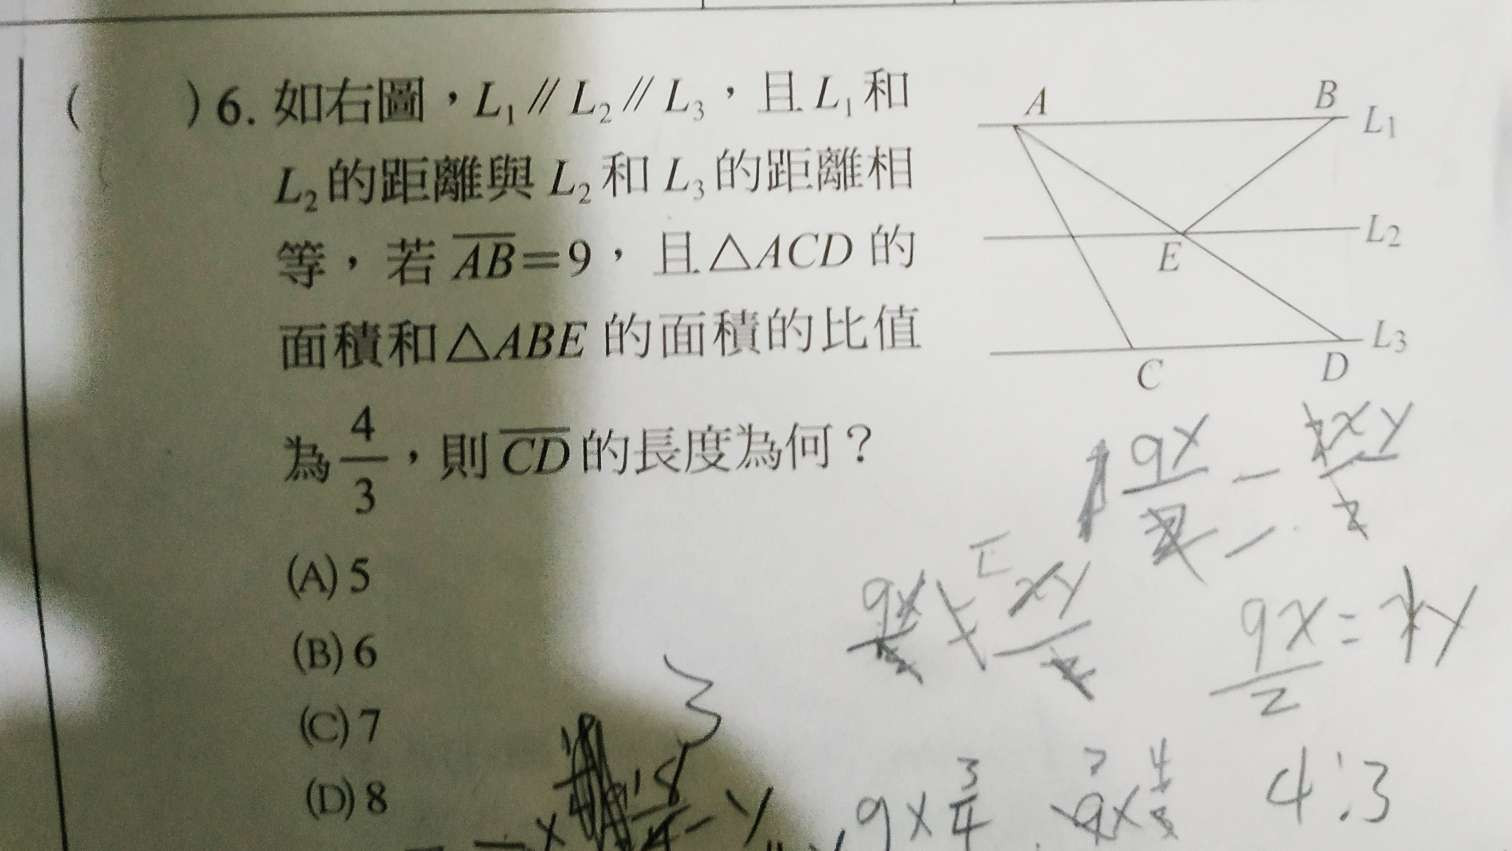 ( )6. 如右圖，L₁∥L₂∥L₃，且L₁和
L₂的距離與L₂和L₃的距離相
等，若AB=9，且△ACD的
面積和△ABE的面積的比值
為4/3，則CD的長度為何？
(A) 5
(B) 6
(C) 7
(D) 8
A
B
L₁
L₂
E
L₃
C
D
9x/2 = xy
3
9×3/4
4:3